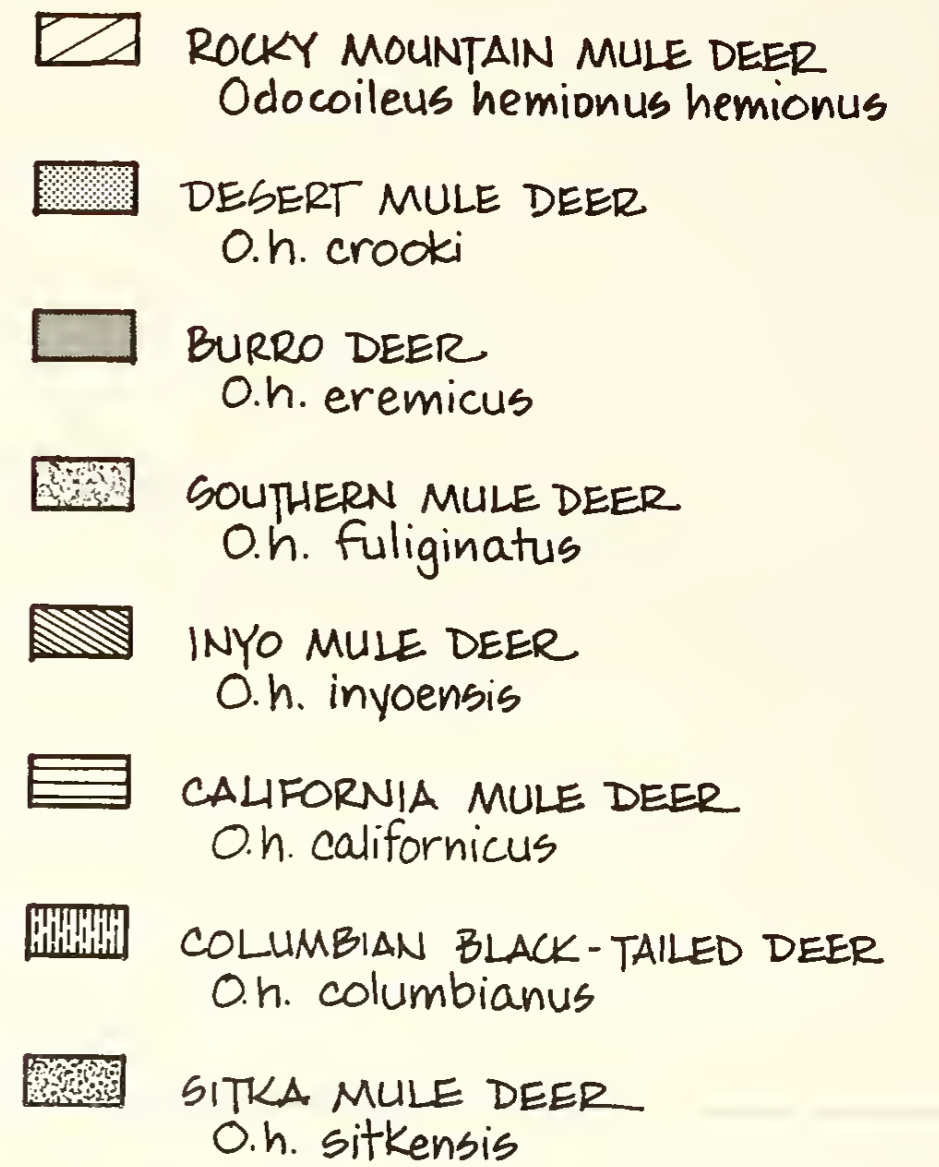 ROCKY MOUNTAIN MULE DEER
Odocoileus hemionus hemionus
DESERT MULE DEER
O.h. crooki
BURRO DEER
O.h. eremicus
SOUTHERN MULE DEER
O.h. fuliginatus
INYO MULE DEER
O.h. inyoensis
CALIFORNIA MULE DEER
O.h. californicus
COLUMBIAN BLACK-TAILED DEER
O.h. columbianus
SITKA MULE DEER
O.h. sitkensis